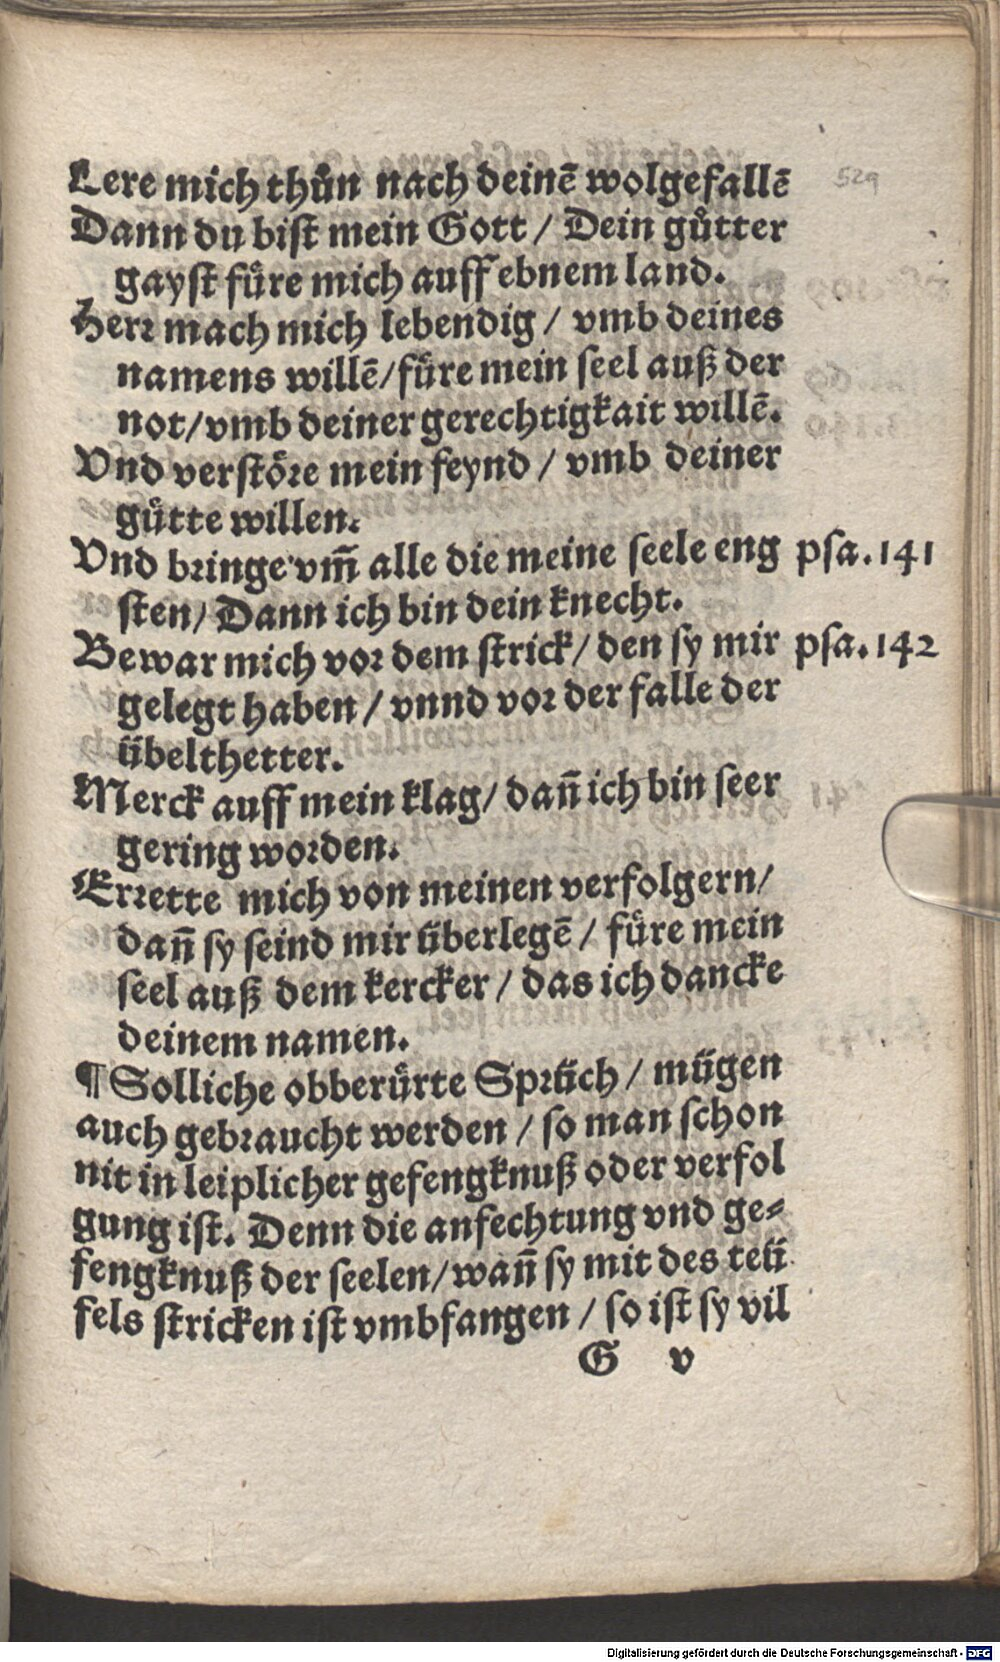 Lere mich thůn nach deinē wolgefallē
Dann du bist mein Gott / Dein gůtter
gayst fůre mich auff ebnem land.
Herr mach mich lebendig / vmb deines
namens willē/fůre mein seel auß der
not/vmb deiner gerechtigkait willē.
Vnd verstöre mein feynd / vmb deiner
gůtte willen.
Vnd bringe vm̃ alle die meine seele eng psa.141
sten/ Dann ich bin dein knecht.
Bewar mich vor dem strick/ den sy mir psa.142
gelegt haben / vnnd vor der falle der
übelthetter.
Merck auff mein klag/ dañ ich bin seer
gering worden.
Errette mich von meinen verfolgern/
dañ sy seind mir überlegē / fůre mein
seel auß dem kercker / das ich dancke
deinem namen.
¶ Solliche obberůrte Sprüch / mügen
auch gebraucht werden / so man schon
nit in leiplicher gefengknuß oder verfol
gung ist. Denn die anfechtung vnd ge⸗
fengknuß der seelen/wañ sy mit des teü
fels stricken ist vmbfangen / so ist sy vil
G v
529
Digitalisierung gefördert durch die Deutsche Forschungsgemeinschaft - DFG